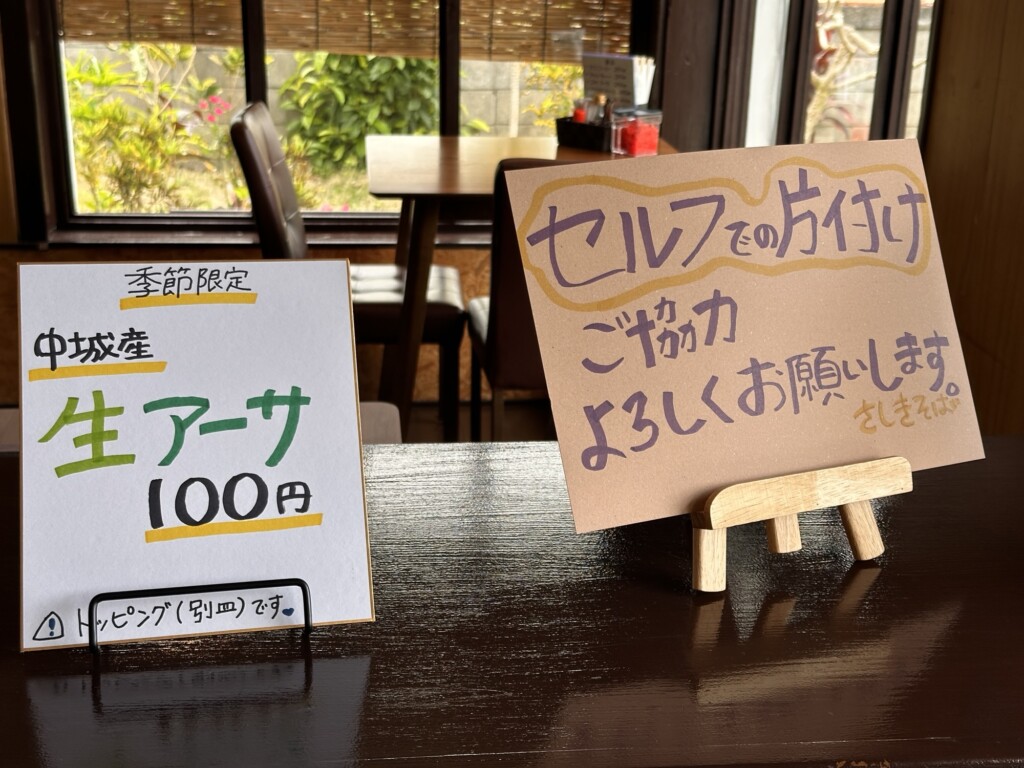 季節限定
中城産
生アーサ
100円
トッピング(別皿)です
セルフでの片付け
ご協力
よろしくお願いします。
さしきそばや